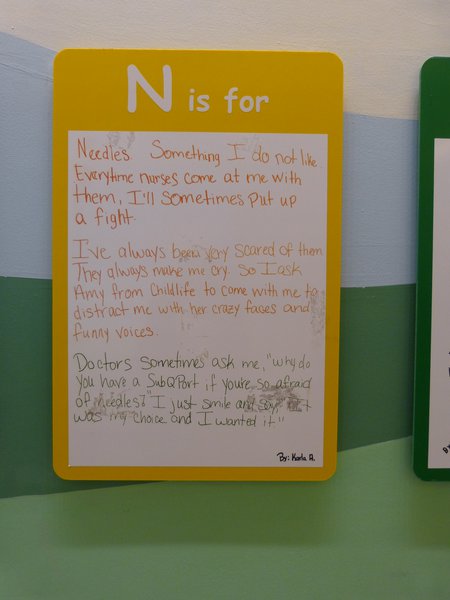 N is for
Needles Something I do not like
Everytime nurses come at me with
them, I'll sometimes put up
a fight.
I've always been very scared of them
They always make me cry. So I ask
Amy from Childlife to come with me to
distract me with her crazy faces and
funny voices.
Doctors sometimes ask me, "why do
you have a SubQPort if you're so afraid
of needles?" I just smile and say, " It
was my choice and I wanted it."
By: Karla A.